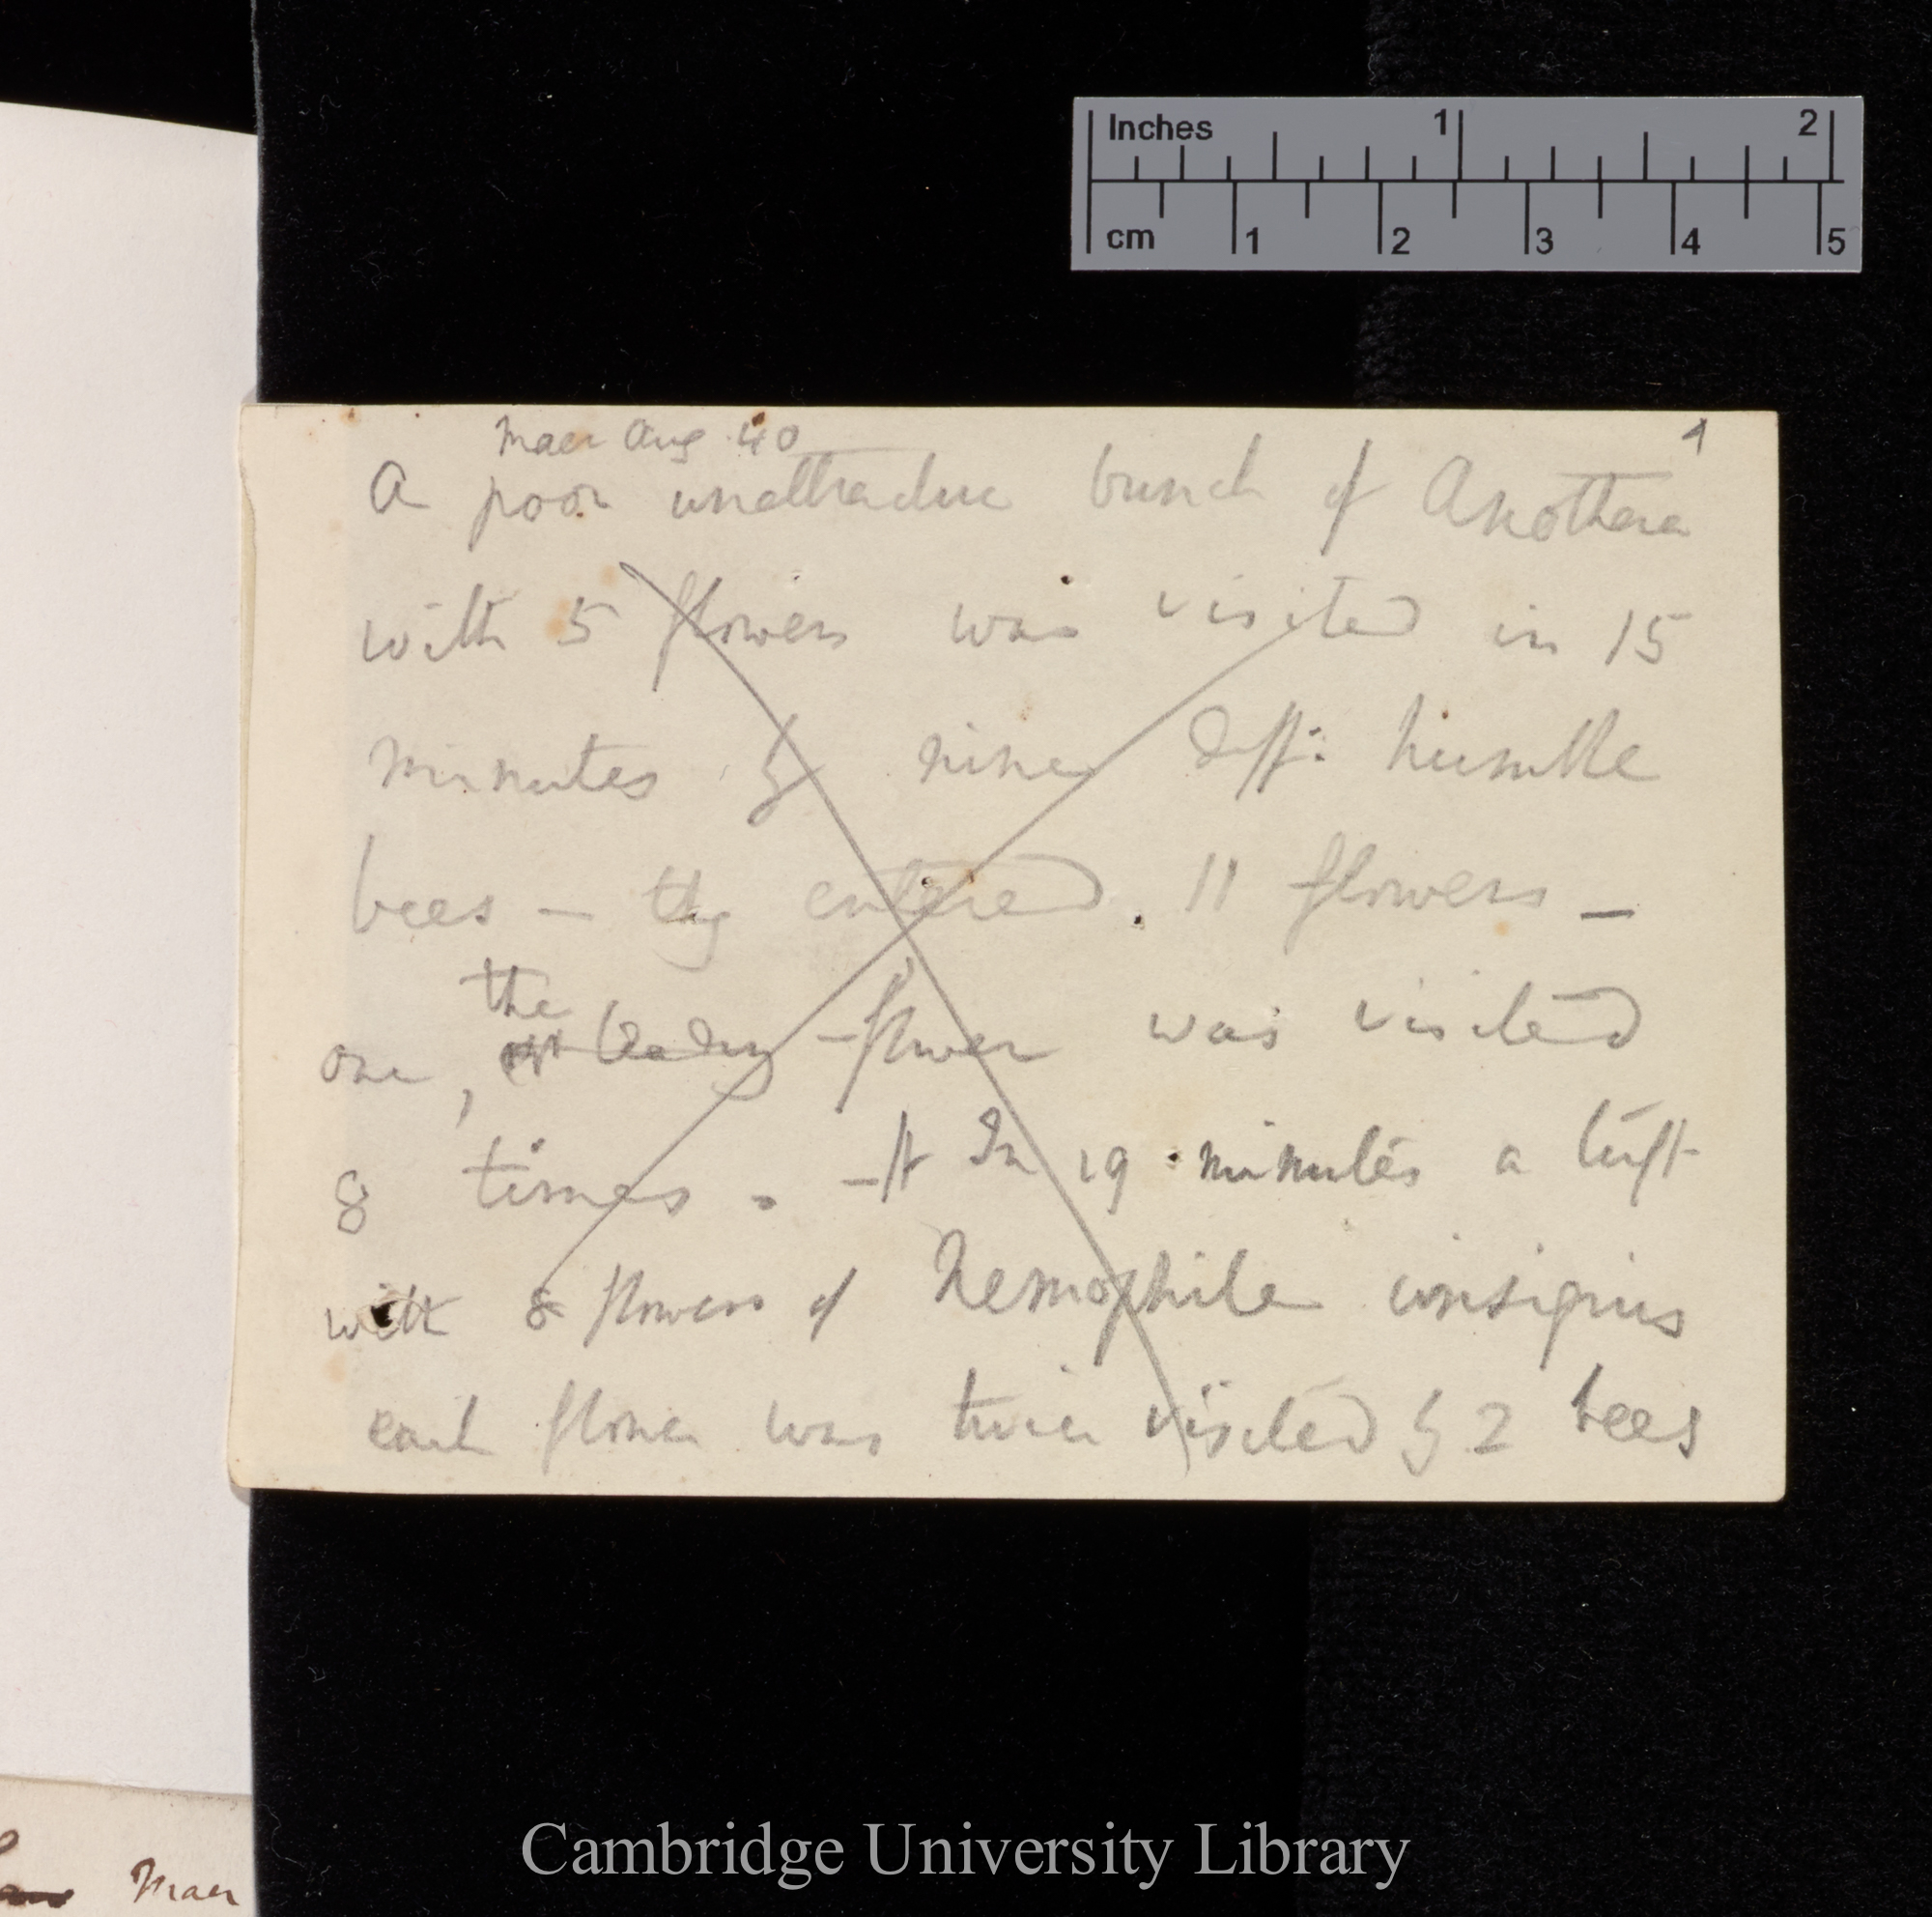 Inches 1 2
cm 1 2 3 4 5
Maer Aug 40
1
A poor unattractive bunch of Ænothera
with 5 flowers was visited in 15
minutes by nine diff: humble
bees — they entered 11 flowers —
the
one, flower was visited
8 times. — In 19 minutes a tuft
with 8 flowers of Nemophila insignis
each flower was twice visited by 2 bees
Maer
Cambridge University Library